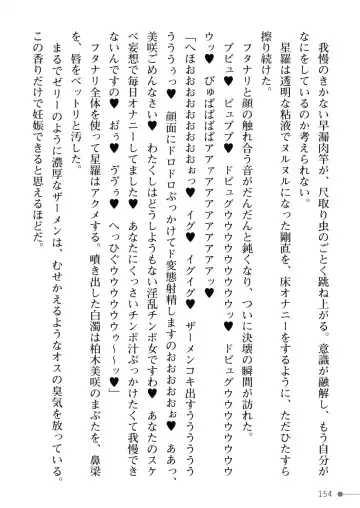 我慢のきかない早漏肉竿が、尺取り虫のごとく跳ね上がる。意識が融解し、もう自分が
なにをしているのか考えられない。
星羅は透明な粘液でヌルヌルになった剛直を、床オナニーをするように、ただひたすら
擦り続けた。
フタナリと顔の触れ合う音がだんだんと鈍くなり、ついに決壊の瞬間が訪れた。
ブピュ♥ ビュブブ♥ ドピュグウウウウウウウウウッ♥ ドピュグウウウウウウウウ
ウッ♥ びゅばばばばアァアアアアアアアアアッ♥
「へほおおおおおおおぉっ♥ イグ♥ イグイグ♥ ザーメンコキ出すうううううう
うううぅっ♥ 顔面にドロドロぶっかけてド変態射精しますのおおおおおぉ♥ ああっ、
美咲ごめんなさい♥ わたくしはどうしようもない淫乱チンポ女ですわ♥ あなたのスケ
べ妄想で毎日オナニーしてました♥ あなたにくっさいチンポ汁ぶっかけたくて我慢でき
ないんですの♥ おぅ♥ ゔゔぅ♥ へっひぐウウウウゥ〜〜ッ♥」
フタナリ全体を使って星羅はアクメする。噴き出した白濁は柏木美咲のまぶたを、鼻梁
を、唇をベットリと汚した。
まるでゼリーのように濃厚なザーメンは、むせかえるようなオスの臭気を放っている。
この香りだけで妊娠できると思えるほどだ。
154